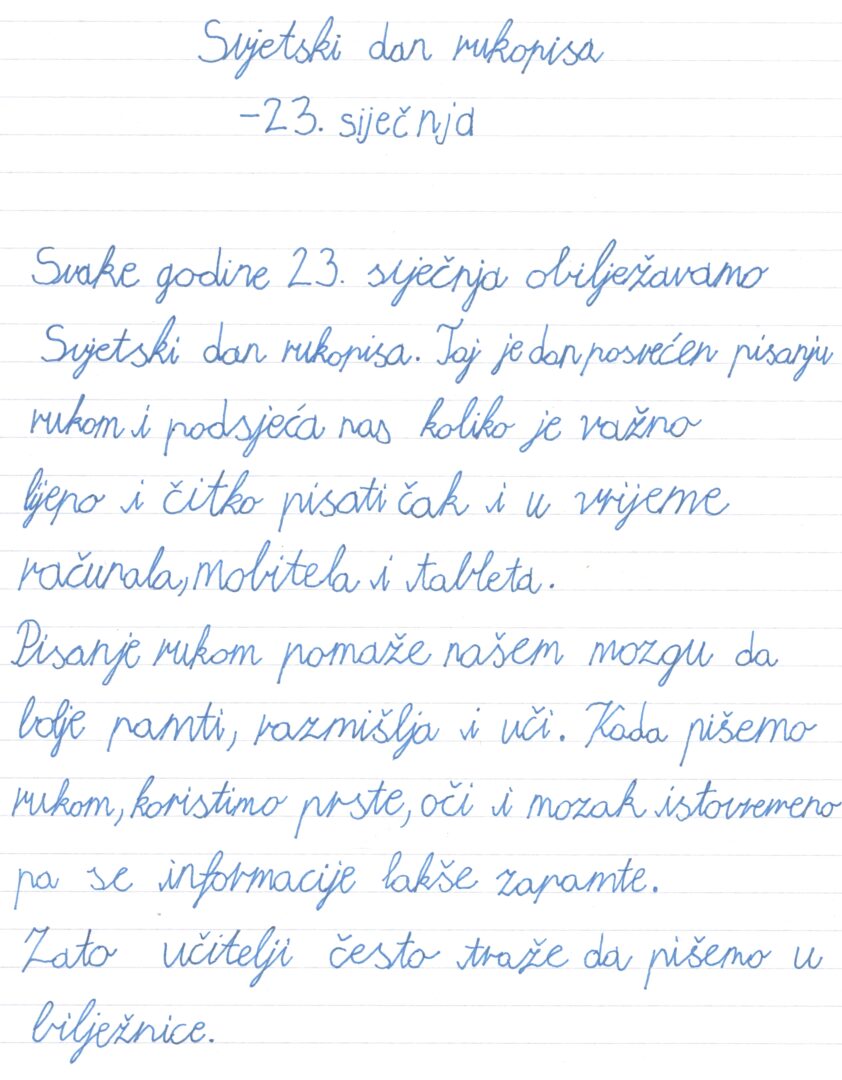 Svjetski dan rukopisa
-23. siječnja
Svake godine 23. siječnja obilježavamo
Svjetski dan rukopisa. Taj je dan posvećen pisanju
rukom i podsjeća nas koliko je važno
lijepo i čitko pisati čak i u vrijeme
računala, mobitela i tableta.
Pisanje rukom pomaže našem mozgu da
bolje pamti, razmišlja i uči. Kada pišemo
rukom, koristimo prste, oči i mozak istovremeno
pa se informacije lakše zapamte.
Zato učitelji često traže da pišemo u
bilježnice.